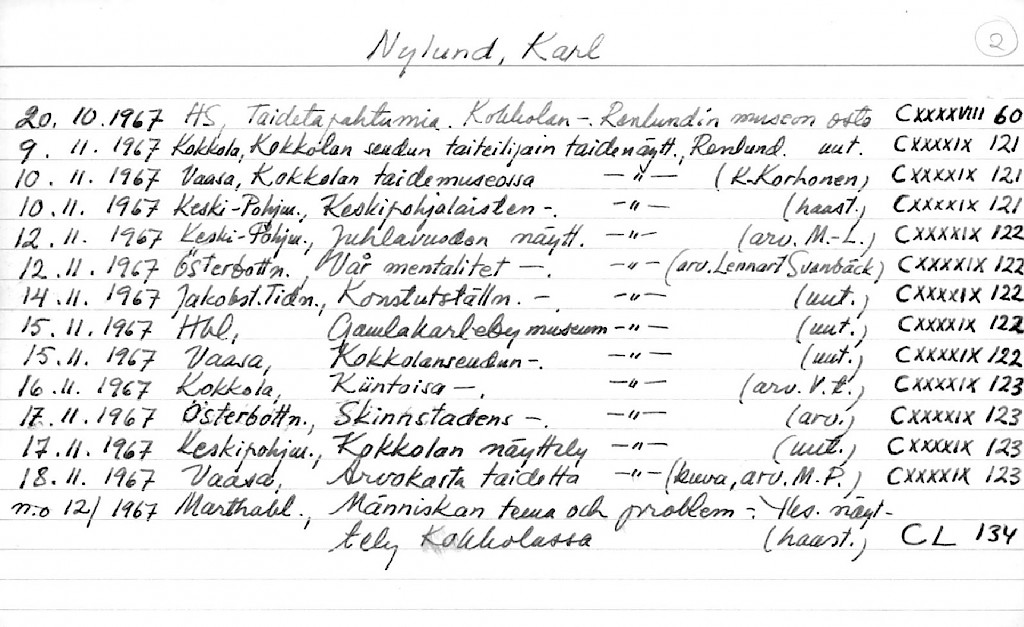 2
Nylund, Karl
20. 10. 1967 HS, Taidetapahtumia. Kokkolan -. Renlundin museon osto CXXXXVIII 60
9. 11. 1967 Kokkola, Kokkolan seudun taiteilijain taidenäytt., Renlund. uut. CXXXXIX 121
10. 11. 1967 Vaasa, Kokkolan taidemuseossa -"- (K. Korhonen) CXXXXIX 121
10. 11. 1967 Keski-Pohjm., Keskipohjalaisten -. -"- (haast.) CXXXXIX 121
12. 11. 1967 Keski-Pohjm., Juhlavuoden näytt. -"- (arv. M.-L.) CXXXXIX 122
12. 11. 1967 Österbottn., Vår mentalitet -. -"- (arv. Lennart Svanbäck) CXXXXIX 122
14. 11. 1967 Jakobst. Tidn., Konstutställn. -. -"- (uut.) CXXXXIX 122
15. 11. 1967 Hbl, Gamlakarleby museum -"- (uut.) CXXXXIX 122
15. 11. 1967 Vaasa, Kokkolanseudun -. -"- (uut.) CXXXXIX 122
16. 11. 1967 Kokkola, Kiintoisa -. -"- (arv. V.) CXXXXIX 123
17. 11. 1967 Österbottn., Skinnstadens -. -"- (arv.) CXXXXIX 123
17. 11. 1967 Keskipohjm., Kokkolan näyttely -"- (uut.) CXXXXIX 123
18. 11. 1967 Vaasa, Arvokasta taidetta -"- (kuva, arv. M.P.) CXXXXIX 123
n:o 12/1967 Marthabl., Människan tema och problem -. Yks. näyt-
tely Kokkolassa (haast.) CL 134